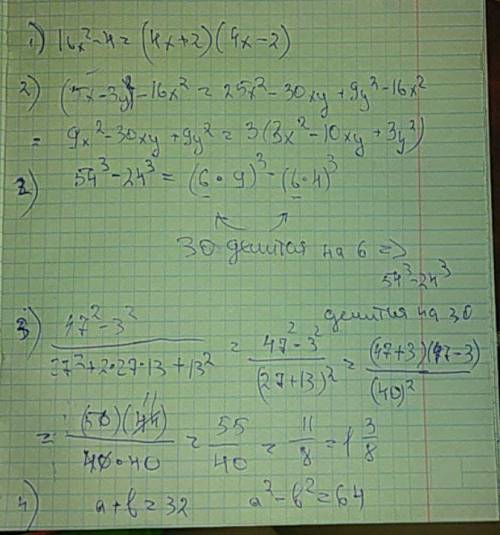 1) 16x²-4=(4x+2)(4x-2)
2) (5x-3y)²-16x²=25x²-30xy+9y²-16x²
=9x²-30xy+9y²=3(3x²-10xy+3y²)
2) 54³-24³=(6•9)³-(6•4)³
30 делится на 6 =>
54³-24³
делится на 30
3) (47²-3²)/(27²+2•27•13+13²) = (47²-3²)/(27+13)² = (47+3)(47-3)/(40)²
= (50)(44)/(40•40) = 55/40 = 11/8 = 1 3/8
4) a+b=32 a²-b²=64